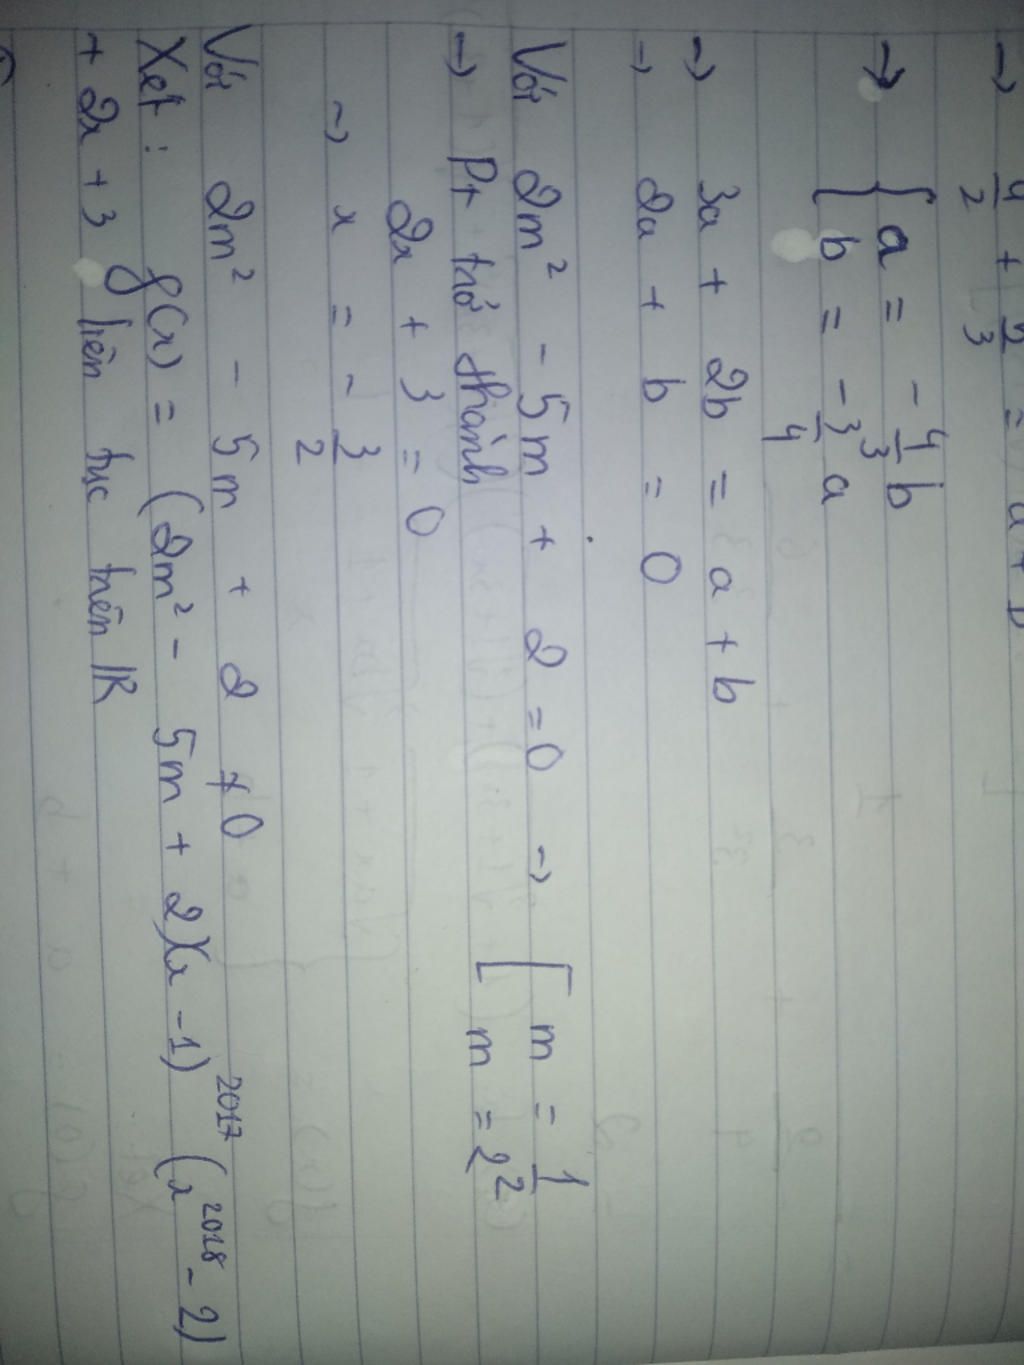 → 4/2 + 2/3 = a + b
→ { a = - 4/3 b
b = - 3/4 a
→ 3a + 2b = a + b
→ 2a + b = 0
Với 2m² - 5m + 2 = 0 → [ m = 1/2
m = 2
→ Pt trở thành
2x + 3 = 0
→ x = - 3/2
Với 2m² - 5m + 2 ≠ 0
Xét : f(x) = (2m² - 5m + 2)(x - 1)²⁰¹⁷ (x²⁰¹⁸ - 2)
+ 2x + 3 liên tục trên ℝ